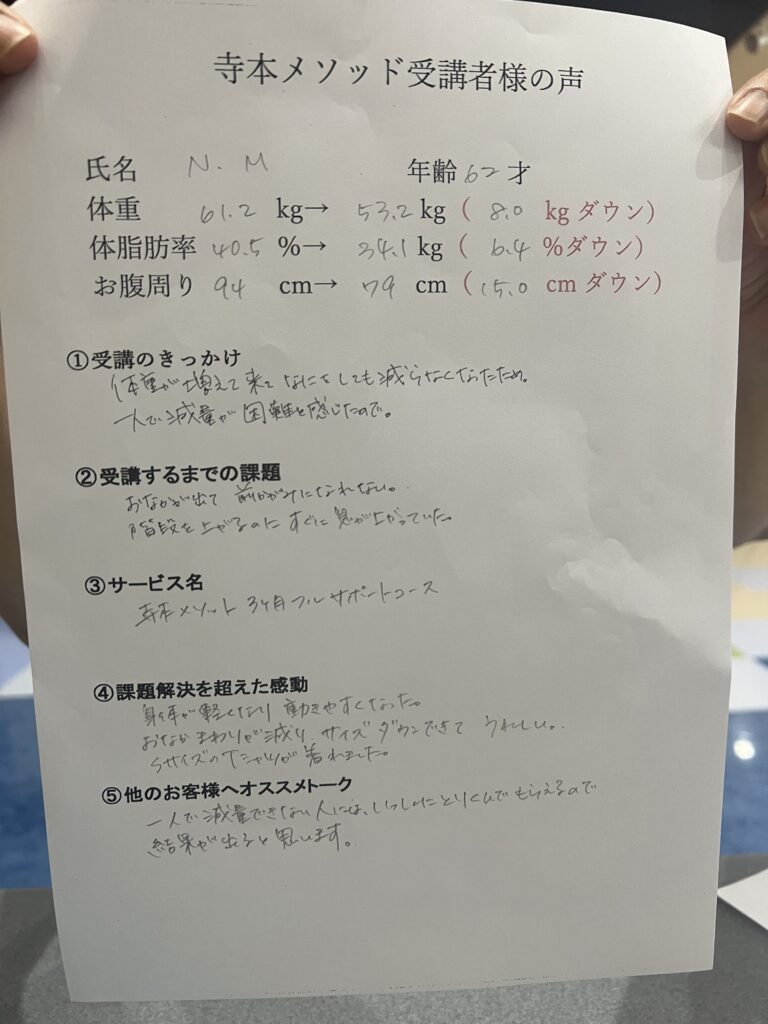 寺本メソッド受講者様の声
氏名 N.M 年齢 62 才
体重 61.2 kg→ 53.2 kg ( 8.0 kg ダウン)
体脂肪率 40.5 %→ 34.1 kg ( 6.4 %ダウン)
お腹周り 94 cm→ 79 cm (15.0 cm ダウン)
①受講のきっかけ
体重が増えて来て なにをしても減らなくなったため。
一人で減量が困難と感じたので。
②受講するまでの課題
おなかが出て 前かがみになれない。
階段を上がるのに すぐに 息が上がっていた。
③サービス名
寺本メソット 3ヶ月フルサポートコース
④課題解決を超えた感動
身体が軽くなり 動きやすくなった。
おなかまわりが減り、サイズダウンできて うれしい。
SサイズのTシャツが着れました。
⑤他のお客様へオススメトーク
一人で減量できない人には、いっしょにとりくんでもらえるので
結果が出ると思います。